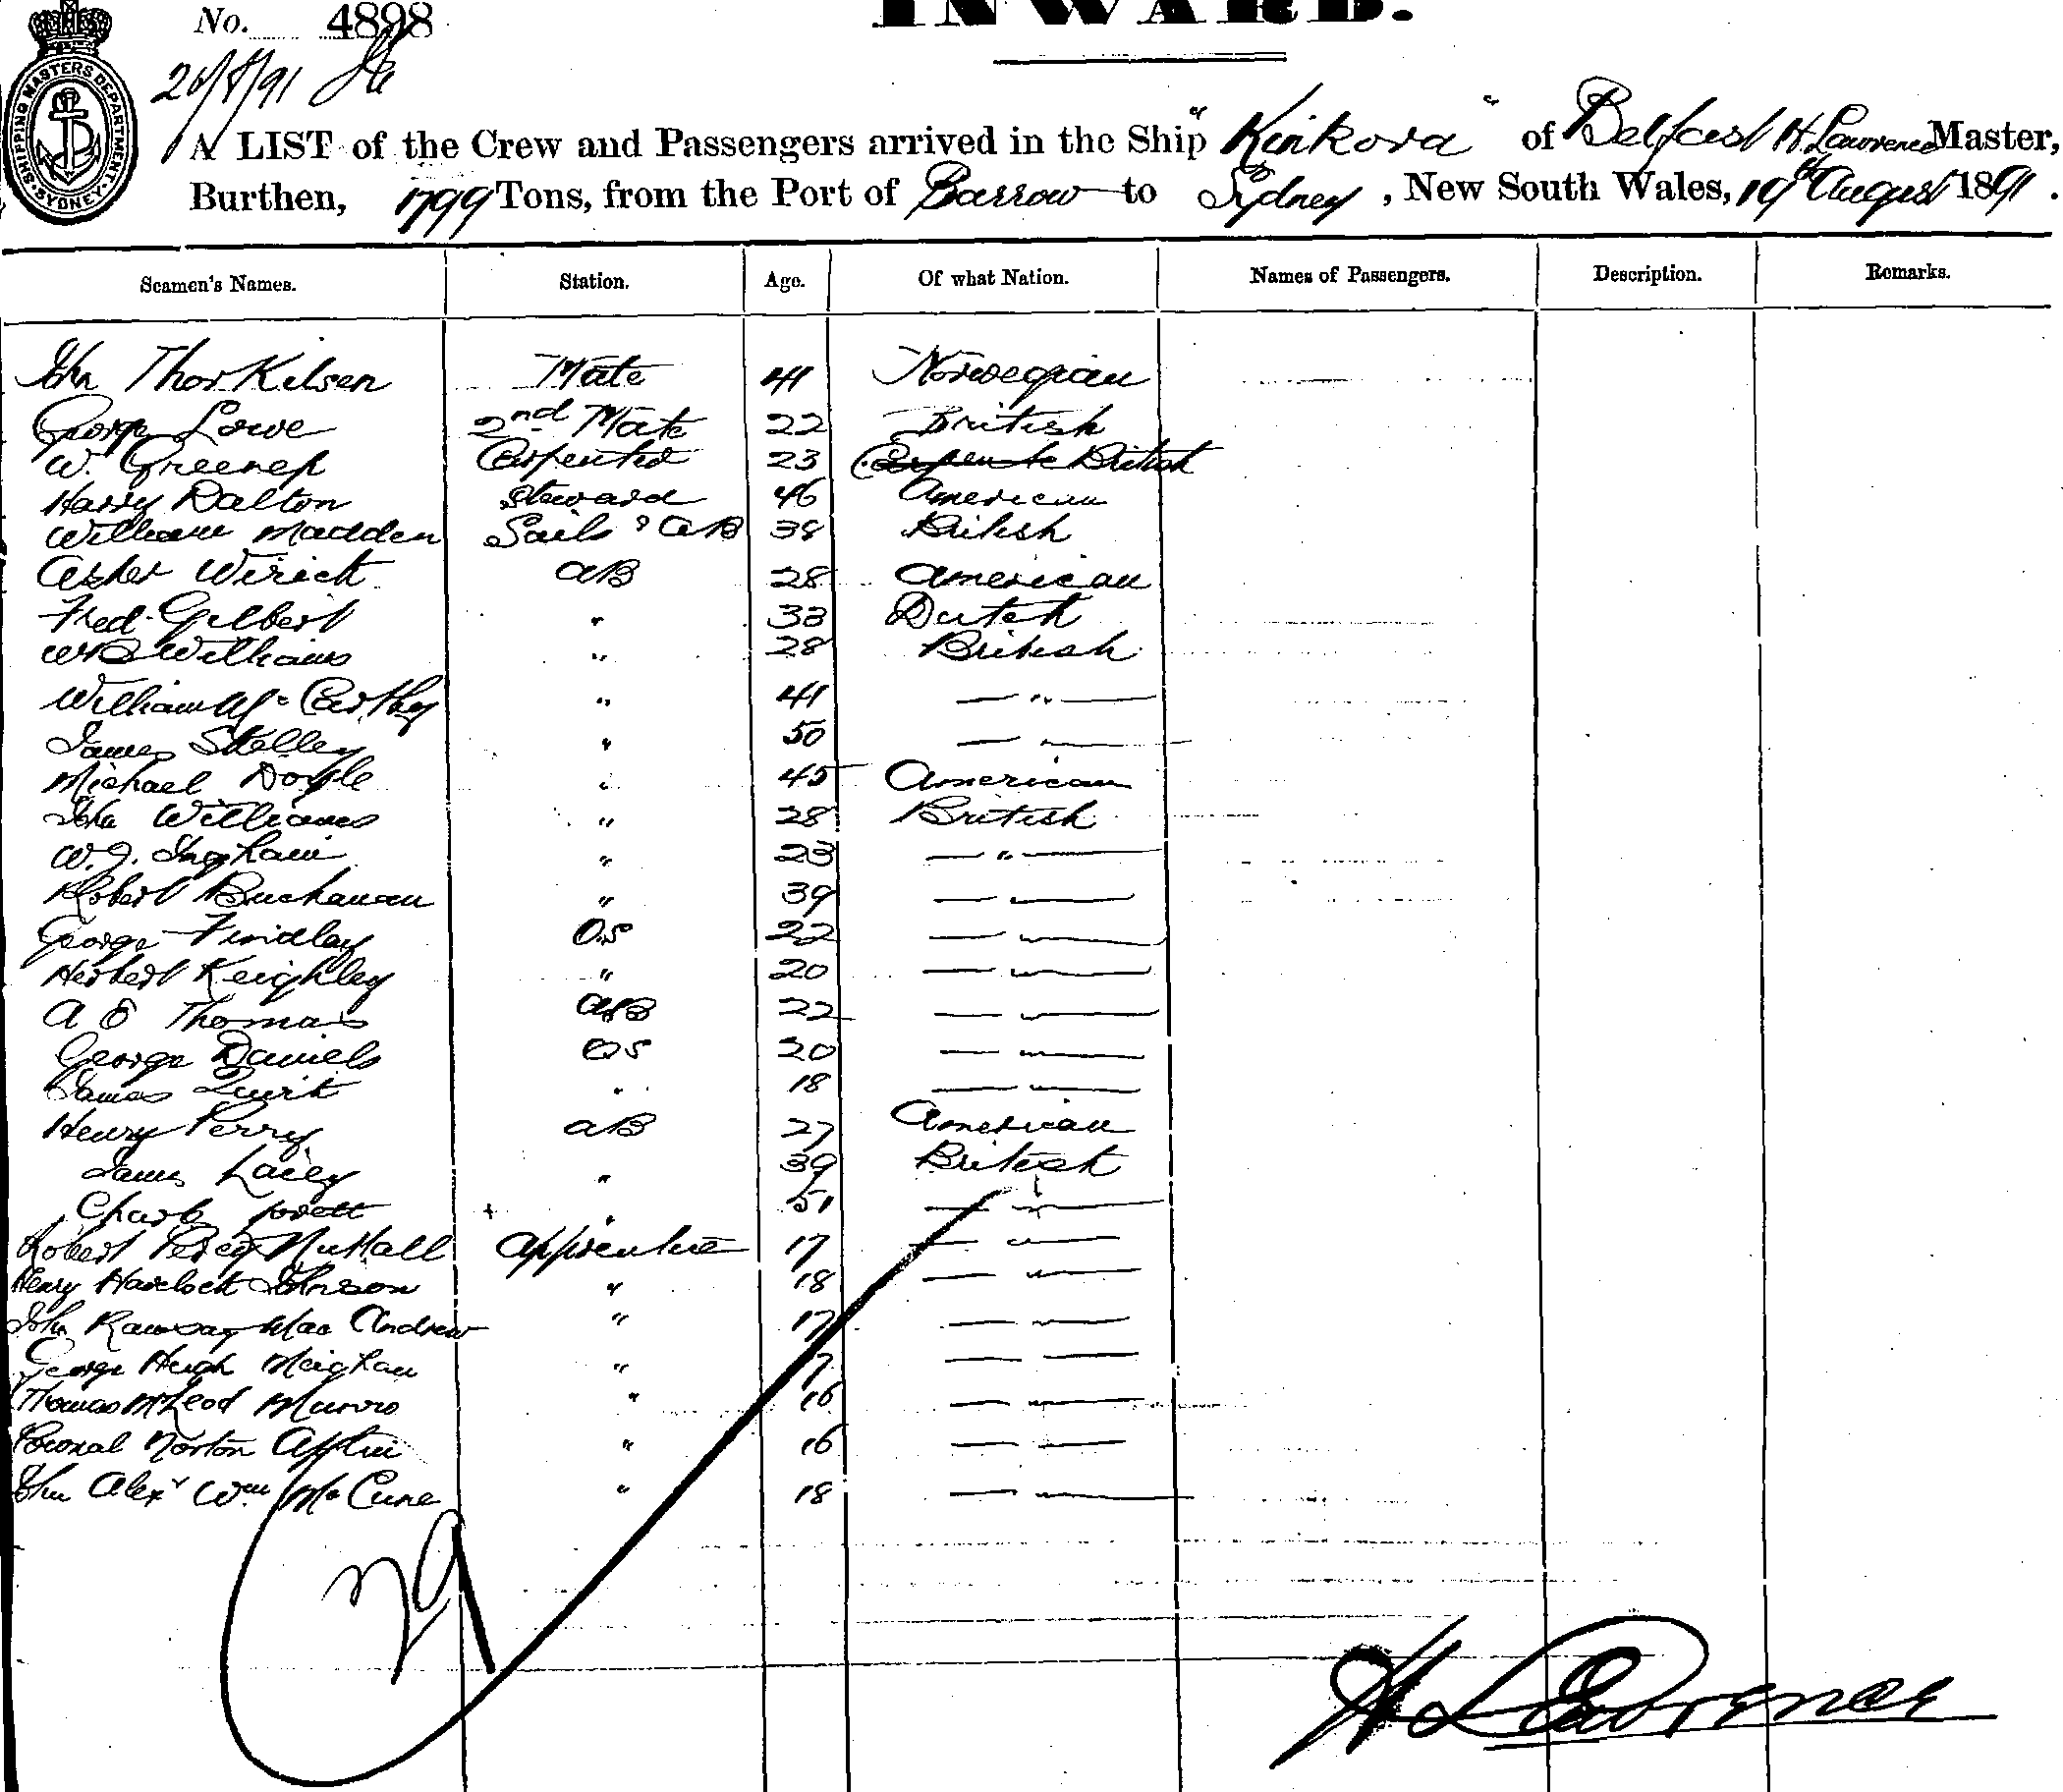 INWARD.
No. 4898
SHIPPING MASTERS DEPARTMENT. SYDNEY
20/8/91
A LIST of the Crew and Passengers arrived in the Ship "Kinkora" of Belfast H. Lawrence Master,
Burthen, 1799 Tons, from the Port of Barrow to Sydney, New South Wales, 19th August 1891.
Seamen's Names. Station. Age. Of what Nation. Names of Passengers. Description. Remarks.
John Thorkilsen Mate 41 Norwegian
George Lowe 2nd Mate 22 British
W. Greenep Carpenter 23 Carpente British
Harry Dalton Steward 46 American
William Madden Sails & AB 38 British
Asher Wirick AB 28 American
Fred. Gilbert " 33 Dutch
Williams " 28 British
William McCarthy " 41 "
James Skelley " 50 "
Michael Doyle " 45 American
John Williams " 28 British
W. J. Ingham " 23 "
Robert Buchanan " 39 "
George Findlay OS 22 "
Herbert Keighley " 20 "
A E Thomas AB 22 "
George Daniels OS 20 "
James Quirk " 18 "
Henry Perry AB 27 American
James Lacey " 39 British
Charls " 51 "
Robert Percy Nuttall Apprentice 17 "
Henry Havelock Johnson " 18 "
John Ramsay MacAndrew " 17 "
George Hugh Meighan " 17 "
Thomas McLeod Munro " 16 "
Norton " 16 "
John Alexr Wm McCune " 18 "
29
H Lawrence